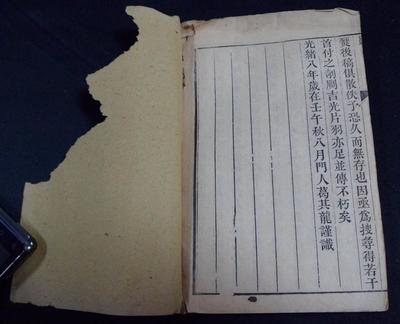 燹後稿俱散佚予恐久而無存也因亟爲搜尋得若干
首付之剞劂吉光片羽亦足並傳不朽矣
光緒八年歲在壬午秋八月門人葛其龍謹識